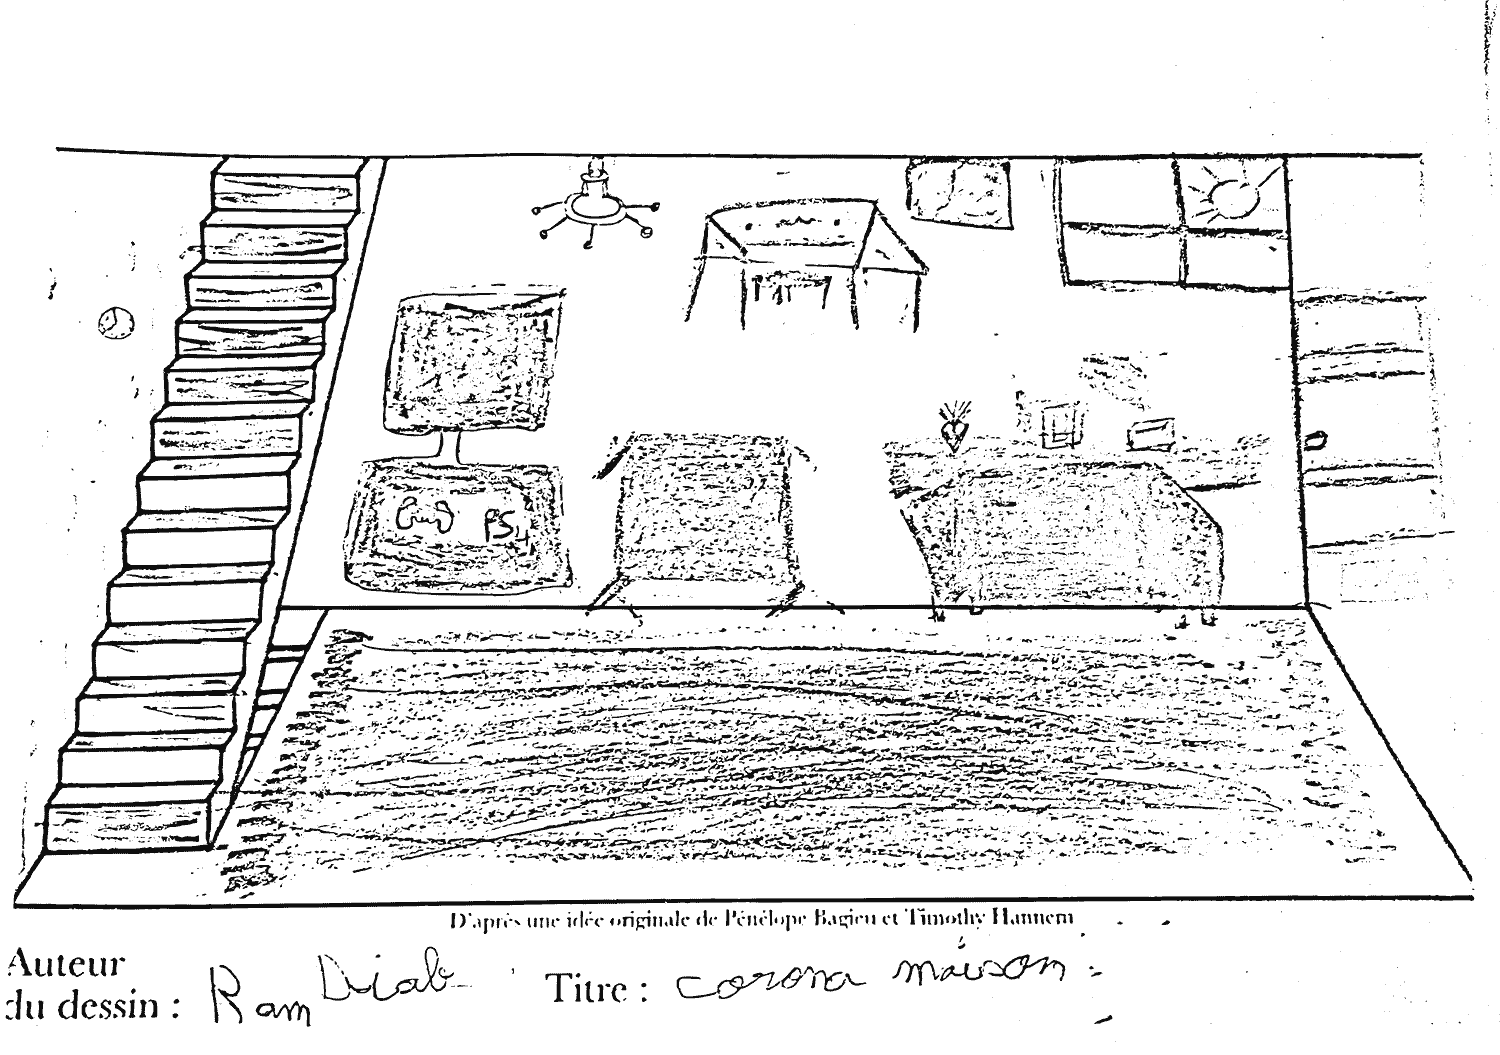 PS4
D'après une idée originale de Pénélope Bagieu et Timothy Hannem
Auteur
du dessin : Ram Diab
Titre : corona maison